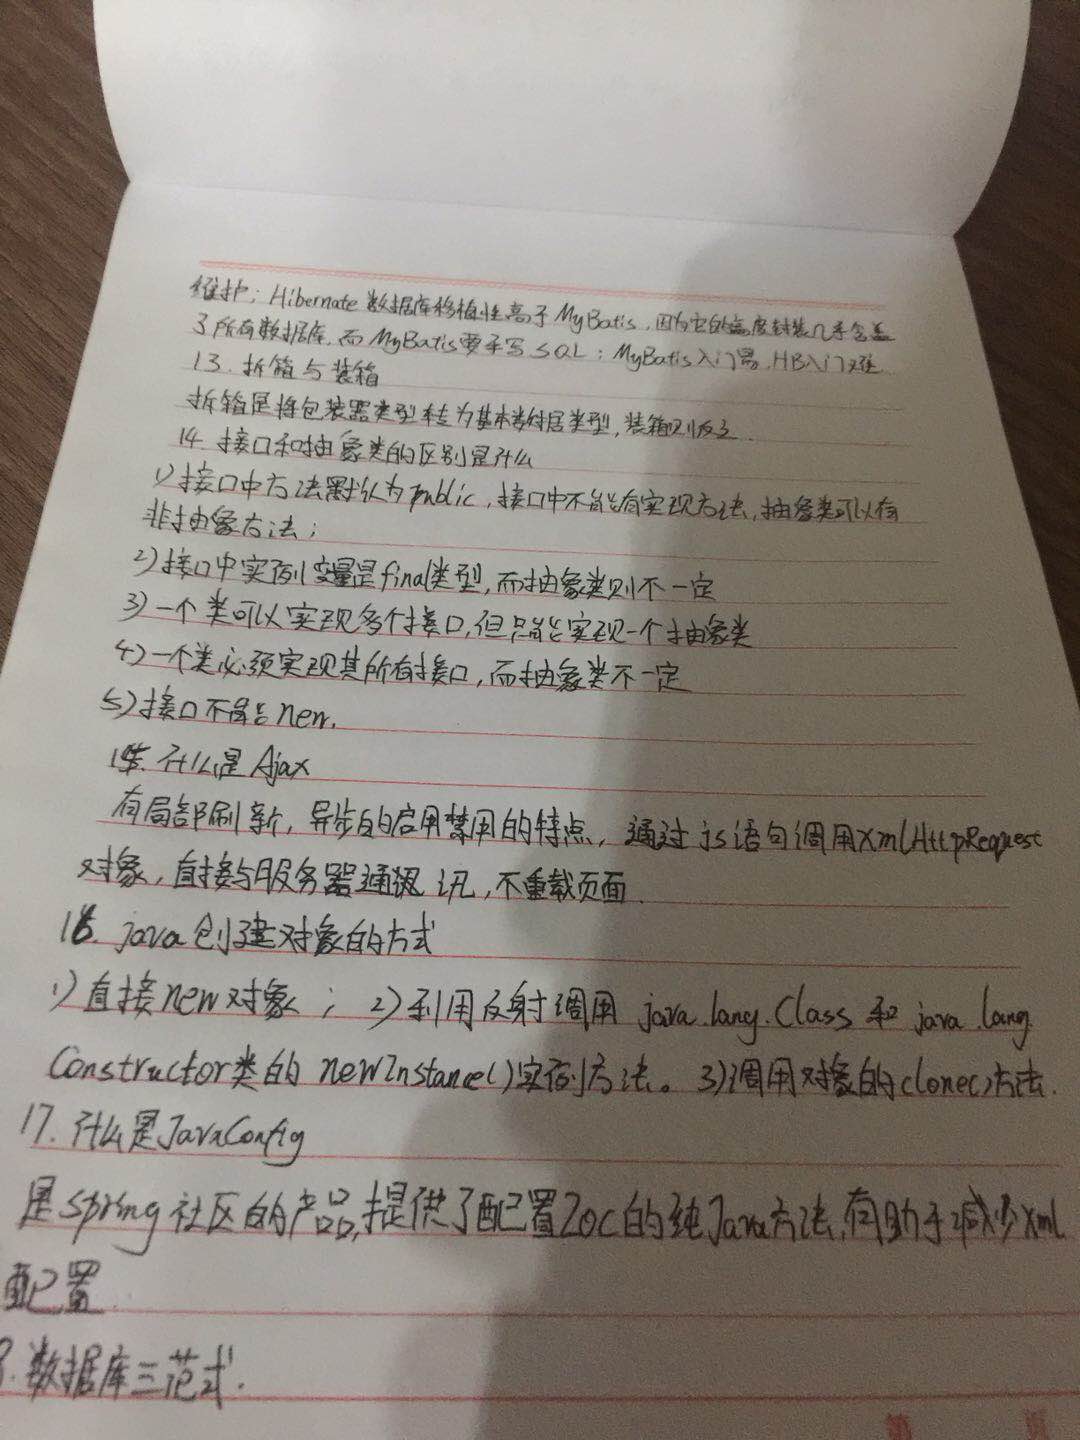 维护；Hibernate数据库移植性高于MyBatis，因为它的高度封装几乎含盖
了所有数据库，而MyBatis要手写SQL；MyBatis入门易，HB入门难
13. 拆箱与装箱
拆箱是将包装器类型转为基本数据类型，装箱则反之.
14. 接口和抽象类的区别是什么
1)接口中方法默认为public，接口中不能有实现方法，抽象类可以有
非抽象方法；
2)接口中实例变量是final类型，而抽象类则不一定
3)一个类可以实现多个接口，但只能实现一个抽象类
4)一个类必须实现其所有接口，而抽象类不一定
5)接口不能new.
15. 什么是Ajax
有局部刷新，异步的启用禁用的特点，通过js语句调用XmlHttpRequest
对象，直接与服务器通讯，不重载页面.
16. java创建对象的方式
1)直接new对象；2)利用反射调用 java.lang.Class 和 java.lang.
Constructor类的newInstance()实例方法。3)调用对象的clone()方法.
17. 什么是JavaConfig
是spring社区的产品,提供了配置IOC的纯Java方法,有助于减少xml
配置.
8. 数据库三范式.
第 页